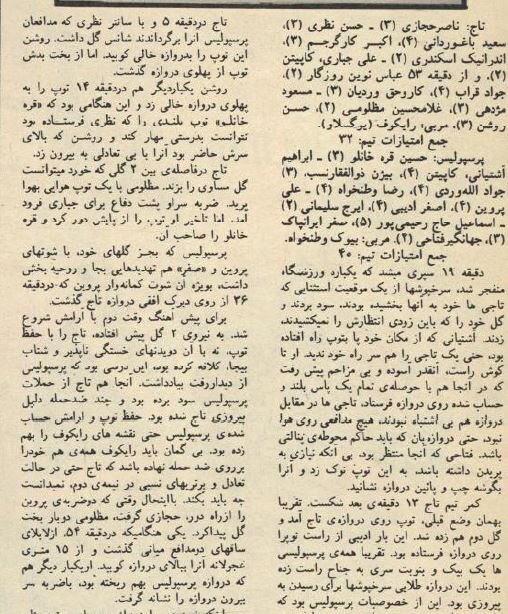 تاج: ناصرحجازی (۳) ـ حسن نظری (۳)،
سعید باغ‌وردانی (۴)، اکبر کارگرجم (۳)،
اندرانیک اسکندری (۲) ـ علی جباری، کاپیتن
(۲)، و از دقیقه ۵۳ عباس نوین روزگار (۲)،
جواد قراب (۴)، کاروحق وردیان (۳) ـ مسعود
مژدهی (۳)، غلامحسین مظلومی (۲)، حسن
روشن (۳). مربی: رایکوف (یرگسلاو).
جمع امتیازات تیم: ۳۲
پرسپولیس: حسین قره خانلو (۳) ـ ابراهیم
آشتیانی، کاپیتن (۴)، بیژن ذوالفقارنسب، (۳)
جواد الله‌وردی (۴)، رضا وطنخواه (۴) ـ علی
پروین (۴)، اصغر ادیبی (۴)، ایرج سلیمانی (۲)
ـ اسماعیل حاج رحیمی‌پور (۵)، سفر ایرانپاک
(۳)، جهانگیرفتاحی (۲). مربی: بیوک وطنخواه.
جمع امتیازات تیم: ۴۰
دقیقه ۱۹ سپری میشد که یکباره ورزشگاه
منفجر شد، سرخپوشها از یک موقعیت استثنایی که
تاجی ها خود به آنها بخشیده بودند، سود بردند و
گل خود را که باین زودی انتظارش را نمیکشیدند،
زدند. آشتیانی که از مکان خود پا بتوپ راه افتاده
بود، حتی یک تاجی را هم سر راه خود ندید. او تا
کوش راست، آنقدر آسوده و بی مزاحم پیش رفت
که در آنجا هم با حوصله‌ی تمام یک پاس بلند و
حساب شده روی دروازه فرستاد، تاجی ها در مقابل
دروازه هم بی اشتباه نبودند، هیچ مدافعی روی هوا
نبود، حتی دروازه‌بان که باید حاکم محوطه‌ی پنالتی
باشد. فتاحی که آنجا منتظر بود، بی آنکه نیازی به
پریدن داشته باشد، به این توپ نوک زد و آنرا
بگوشه چپ و پائین دروازه نشانید.
کمر تیم تاج ۱۳ دقیقه‌ی بعد شکست. تقریبا
بهمان وضع قبلی، توپ روی دروازه‌ی تاج آمد و
گل دوم هم زده شد. این بار ادیبی از راست توپرا
روی دروازه فرستاده بود. تقریبا همه‌ی پرسپولیسی
ها یک بیک و بنوبت سری به جناح راست زده
بودند. این دروازه طلایی سرخپوشها برای رسیدن به
پیروزی بود. این از خصوصیات پرسپولیس بود که
تاج دردقیقه ۵ و با سانتر نظری که مدافعان
پرسپولیس آنرا برگرداندند شانس گل داشت. روشن
این توپ را بدروازه خالی کوبید. اما از بخت بدش
توپ از پهلوی دروازه گذشت.
روشن یکباردیگر هم دردقیقه ۱۴ توپ را به
پهلوی دروازه خالی زد و این هنگامی بود که «قره
خانلو» توپ بلندی را که نظری فرستاده بود
نتوانست بدرستی مهار کند و روشن که بالای
سرش حاضر بود آنرا با بی تعادلی به بیرون زد.
تاج درفاصله‌ی بین ۲ گلی که خورد میتوانست
گل مساوی را بزند. مظلومی با یک توپ هوایی بهوا
پرید. ضربه سراو پشت دفاع برای جباری فرود
آمد. اما تاخیر او توپ را از پایش دور کرد و قره
خانلو را صاحب آن.
پرسپولیس که بجز گلهای خود، با شوتهای
پروین و «صفر» هم تهدیدهایی بجا و روحیه بخش
داشت، بویژه آن شوت کمانه‌وار پروین که دردقیقه
۲۶ از روی دیرک افقی دروازه تاج گذشت.
برای پیش آهنگ وقت دوم با آرامش شروع
شد. به نیروی ۲ گل پیش افتاده، تاج را با حفظ
توپ، نه با آن دویدنهای خستگی ناپذیر و شتاب
بیجا، کلافه کرده بود. این درسی بود که پرسپولیس
از دیداررفت بیادداشت. آنجا هم تاج از حملات
پرسپولیس سود برده بود و چند ضدحمله دلیل
پیروزی تاج شده بود. حفظ توپ و آرامش حساب
شده‌ی پرسپولیس حتی نقشه های رایکوف را بهم
زده بود. بی گمان باید رایکوف همه‌ی هم خودرا
برروی ضد حمله نهاده باشد که تاج حتی در حالت
تعادل و برتریهای نسبی در نیمه‌ی دوم، نمیدانست
چه باید بکند. بااینحال وقتی که دوضربه‌ی پروین
را ازراه دور، حجازی گرفت، مظلومی دوبار بخت
گل پیداکرد. یکی هنگامیکه دردقیقه ۵۴، ازلابلای
ساقهای دومدافع میانی گذشت و از ۱۵ متری
عجولانه آنرا ببالای دروازه کوبید. اریکبار دیگر هم
که دروازه پرسپولیس بهم ریخته بود، باضربه سر
بیرون دروازه را نشانه گرفت.